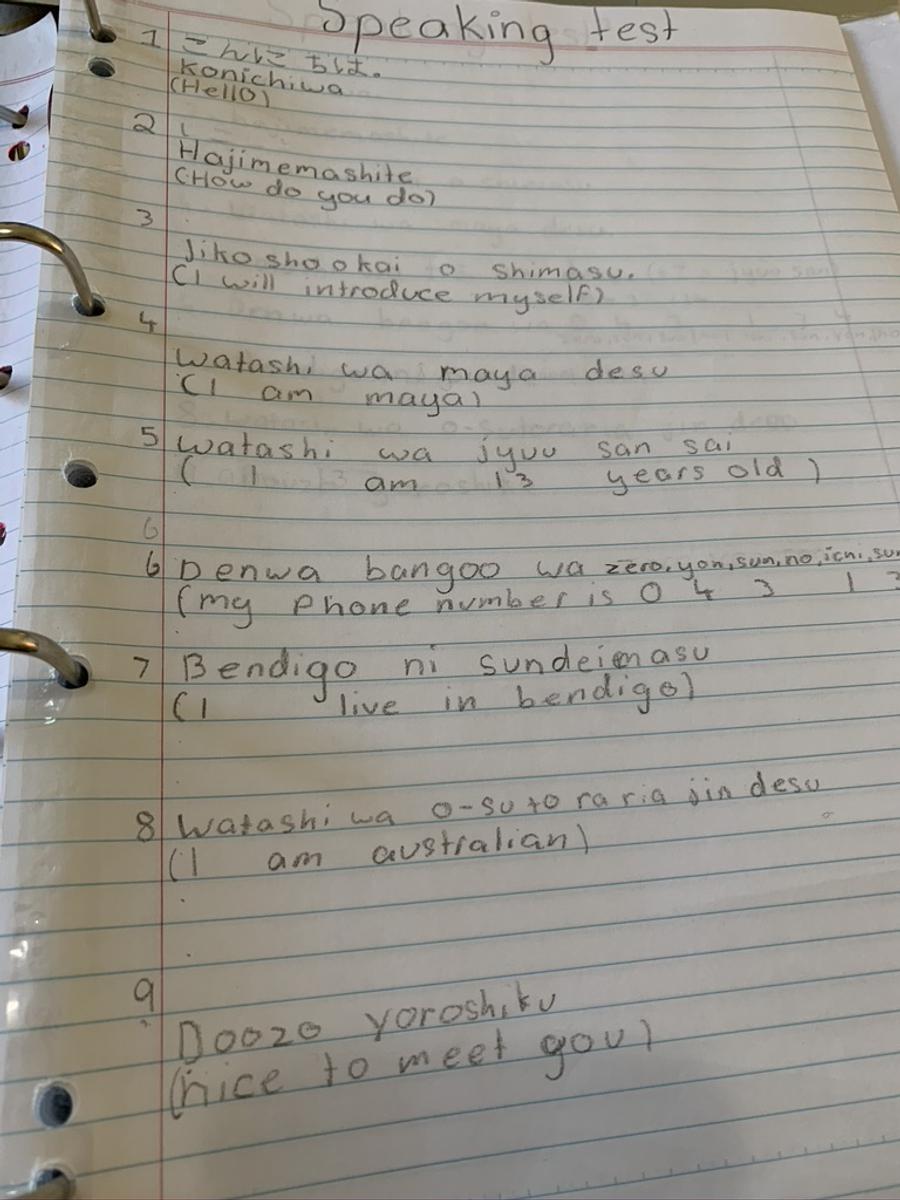 Speaking test
1 こんにちは。
Konichiwa
(Hello)
2
Hajimemashite
(How do you do)
3
Jiko shookai o shimasu.
(I will introduce myself)
4
Watashi wa maya desu
(I am maya)
5 Watashi wa jyuu san sai
( I am 13 years old )
6
6 Denwa bangoo wa zero, yon, sun, no, ichi,
(my phone number is 0 4 3 1
7 Bendigo ni sundeimasu
(I live in bendigo)
8 Watashi wa o-sutoraria jin desu
(I am australian)
9
Doozo yoroshiku
(nice to meet you)